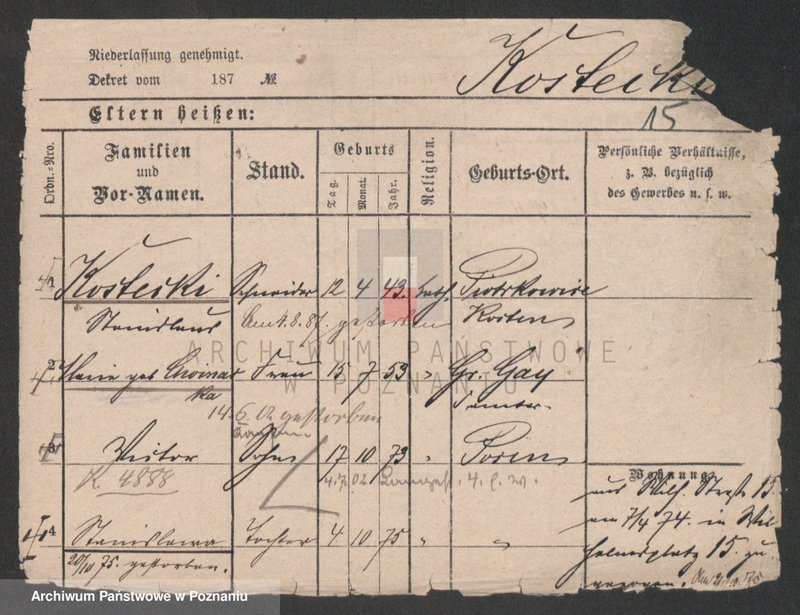 Niederlassung genehmigt.
Dekret vom 187 №
Kostecki
15
Eltern heißen:
Ordn.-Nro.
Familien
und
Vor-Namen.
Stand.
Geburts
Tag.
Monat.
Jahr.
Religion.
Geburts-Ort.
Persönliche Verhältnisse,
z. B. bezüglich
des Gewerbes u. s. w.
1 Kostecki Schneider 12 4 43. kath. Piotrkowice
Stanislaus Am 4.8.87. gestorben Kosten
ARCHIWUM PAŃSTWOWE
W POZNANIU
2 Marie geb Frau 15 7 53 " Gr. Gay
ka Samter.
14. 6. 02 gestorben
3 Victor Sohn 17 10 73 " Posen
K 4888 4.7. 02
Wohnung.
aus Wilh. Straße 15.
am 7/4 74. in Wil-
helmsplatz 15. zu-
gezogen.
4 Stanislawa Tochter 4. 10 75 " "
20/10 75. gestorben.
Archiwum Państwowe w Poznaniu